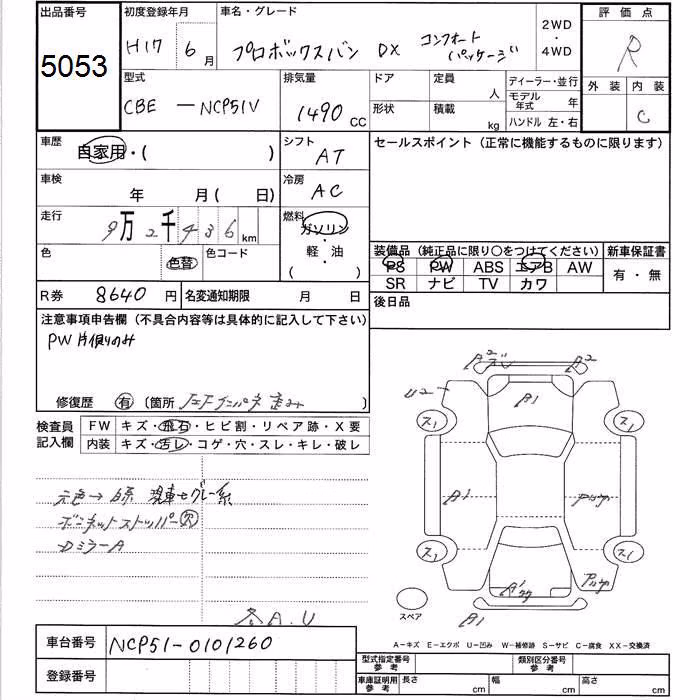 出品番号 初度登録年月 車名・グレード 2WD・4WD 評価点
5053 H17 6月 プロボックスバン DX コンフォートパッケージ R
型式 排気量 ドア 定員 人 ディーラー・並行 外装 内装
CBE ーNCP51V 1490 CC 形状 積載 kg モデル年式 年 C
ハンドル 左・右
車歴 自家用・( ) シフト AT セールスポイント (正常に機能するものに限ります)
車検 年 月( 日) 冷房 AC
走行 9万 2千 4 3 6 km 燃料 ガソリン・軽油 ( )
色 色替 色コード
装備品 (純正品に限り〇をつけてください) 新車保証書
PS PW ABS エアB AW 有・無
SR ナビ TV カワ
R券 8640 円 名変通知期限 月 日 後日品
注意事項申告欄 (不具合内容等は具体的に記入して下さい)
PW 片側のみ
修復歴 有 (箇所 )
検査員記入欄 FW キズ・飛石・ヒビ割・リペア跡・X要
内装 キズ・汚レ・コゲ・穴・スレ・キレ・破レ
元色→白系 現車→グレー系
ボンネットストッパー欠
DミラーA
各A.U
A2 A2
U2 A1
ス1 ス1
A1
ス1 ス1
A1
スペア
A-キズ E-エクボ U-凹み W-補修跡 S-サビ C-腐食 XX-交換済
車台番号 NCP51-0101260
登録番号
型式指定番号 参考 類別区分番号 参考
車庫証明用 参考 長さ cm 幅 cm 高さ cm